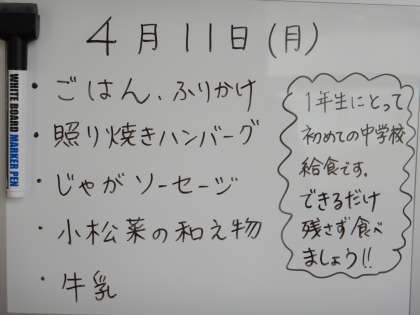 4月11日(月)
・ごはん、ふりかけ
・照り焼きハンバーグ
・じゃがソーセージ
・小松菜の和え物
・牛乳
1年生にとって
初めての中学校
給食です。
できるだけ
残さず食べ
ましょう!!
WHITE BOARD
MARKER PEN